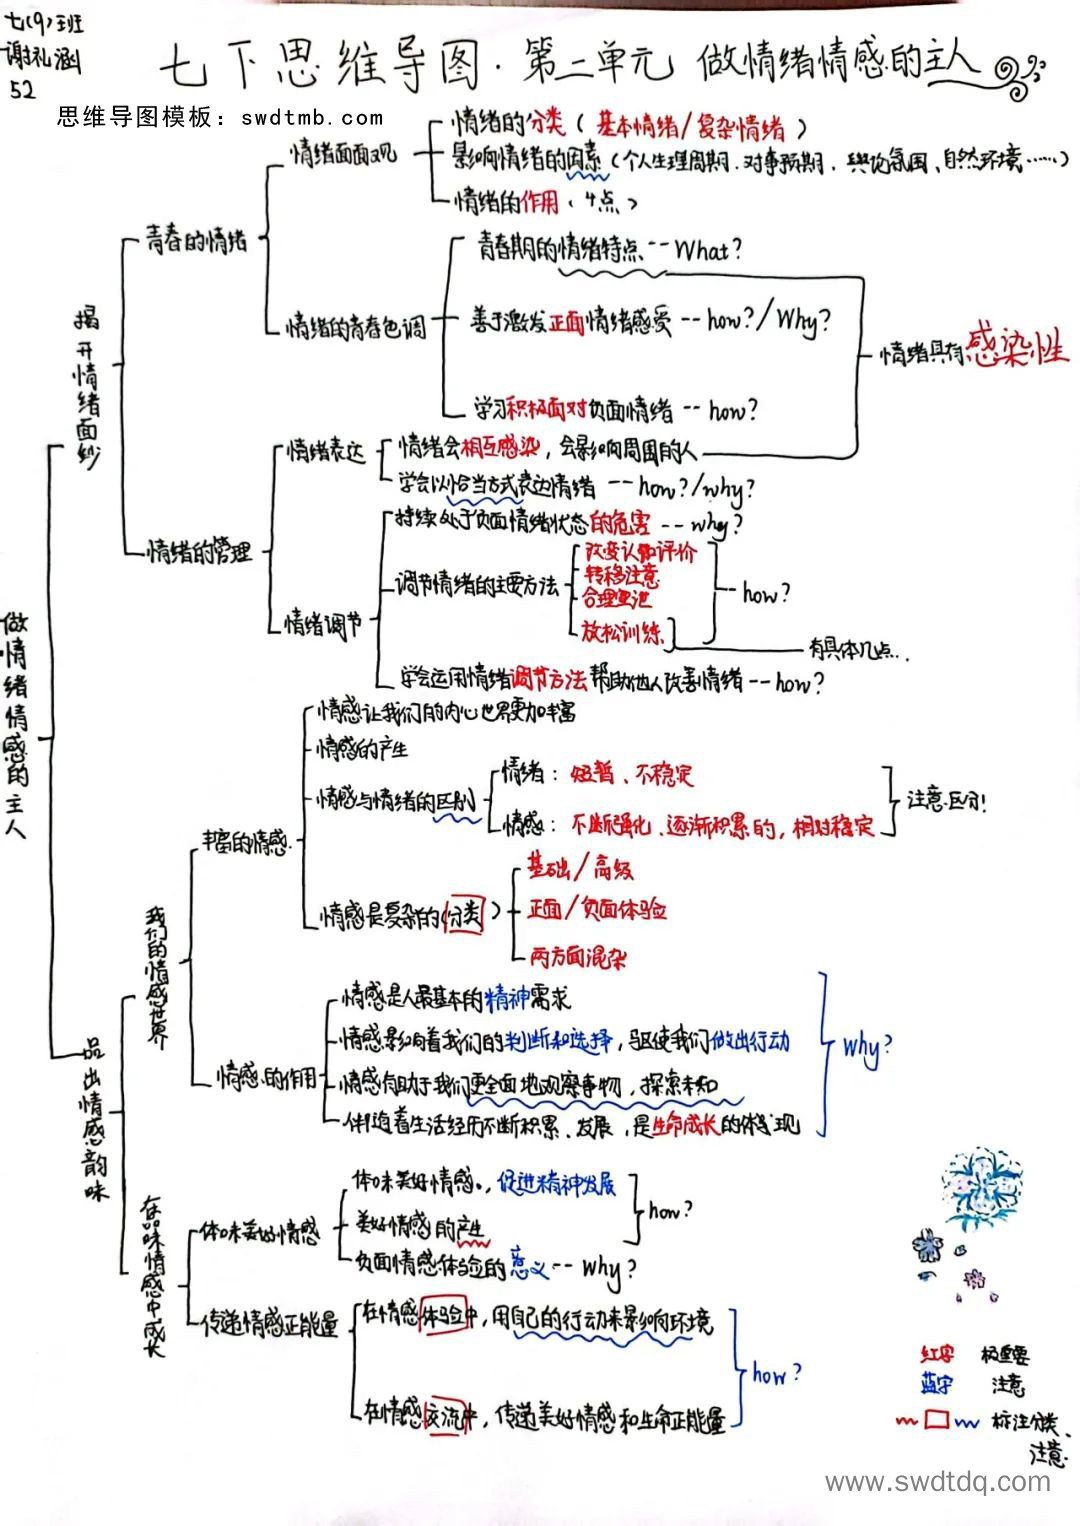 七(9)班
谢礼涵
52
七下思维导图·第二单元 做情绪情感的主人
思维导图模板：swdtmb.com
做情绪情感的主人
揭开情绪面纱
青春的情绪
情绪面面观
情绪的分类（基本情绪/复杂情绪）
影响情绪的因素（个人生理周期、对事预期、舆论氛围、自然环境……）
情绪的作用（4点）
情绪的青春色调
青春期的情绪特点--What?
善于激发正面情绪感受--how?/Why?
学习积极面对负面情绪--how?
情绪具有感染性
情绪的管理
情绪表达
情绪会相互感染，会影响周围的人
学会以恰当方式表达情绪--how?/why?
情绪调节
持续处于负面情绪状态的危害--why?
调节情绪的主要方法
改变认知评价
转移注意
合理宣泄
放松训练
how?
有具体几点..
学会运用情绪调节方法帮助他人改善情绪--how?
品出情感韵味
我们的情感世界
丰富的情感
情感让我们的内心世界更加丰富
情感的产生
情感与情绪的区别
情绪：短暂、不稳定
情感：不断强化、逐渐积累的，相对稳定
注意区分!
情感是复杂的(分类)
基础/高级
正面/负面体验
两方面混杂
情感的作用
情感是人最基本的精神需求
情感影响着我们的判断和选择，驱使我们做出行动
情感有助于我们更全面地观察事物，探索未知
伴随着生活经历不断积累、发展，是生命成长的体现
why?
在品味情感中成长
体味美好情感
体味美好情感，促进精神发展
美好情感的产生
how?
负面情感体验的意义--Why?
传递情感正能量
在情感体验中，用自己的行动来影响环境
在情感交流中，传递美好情感和生命正能量
how?
红字 极重要
蓝字 注意
标注分类、
注意
www.swdtdq.com